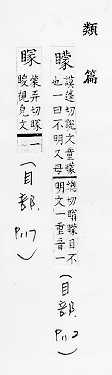 類篇
矇 謨蓬切說文童矇
也一曰不明又母
緫切瞢矇目不
明文一重音一
(目部,P.112)
蒙弄切
視皃文一
(目部,P.117)